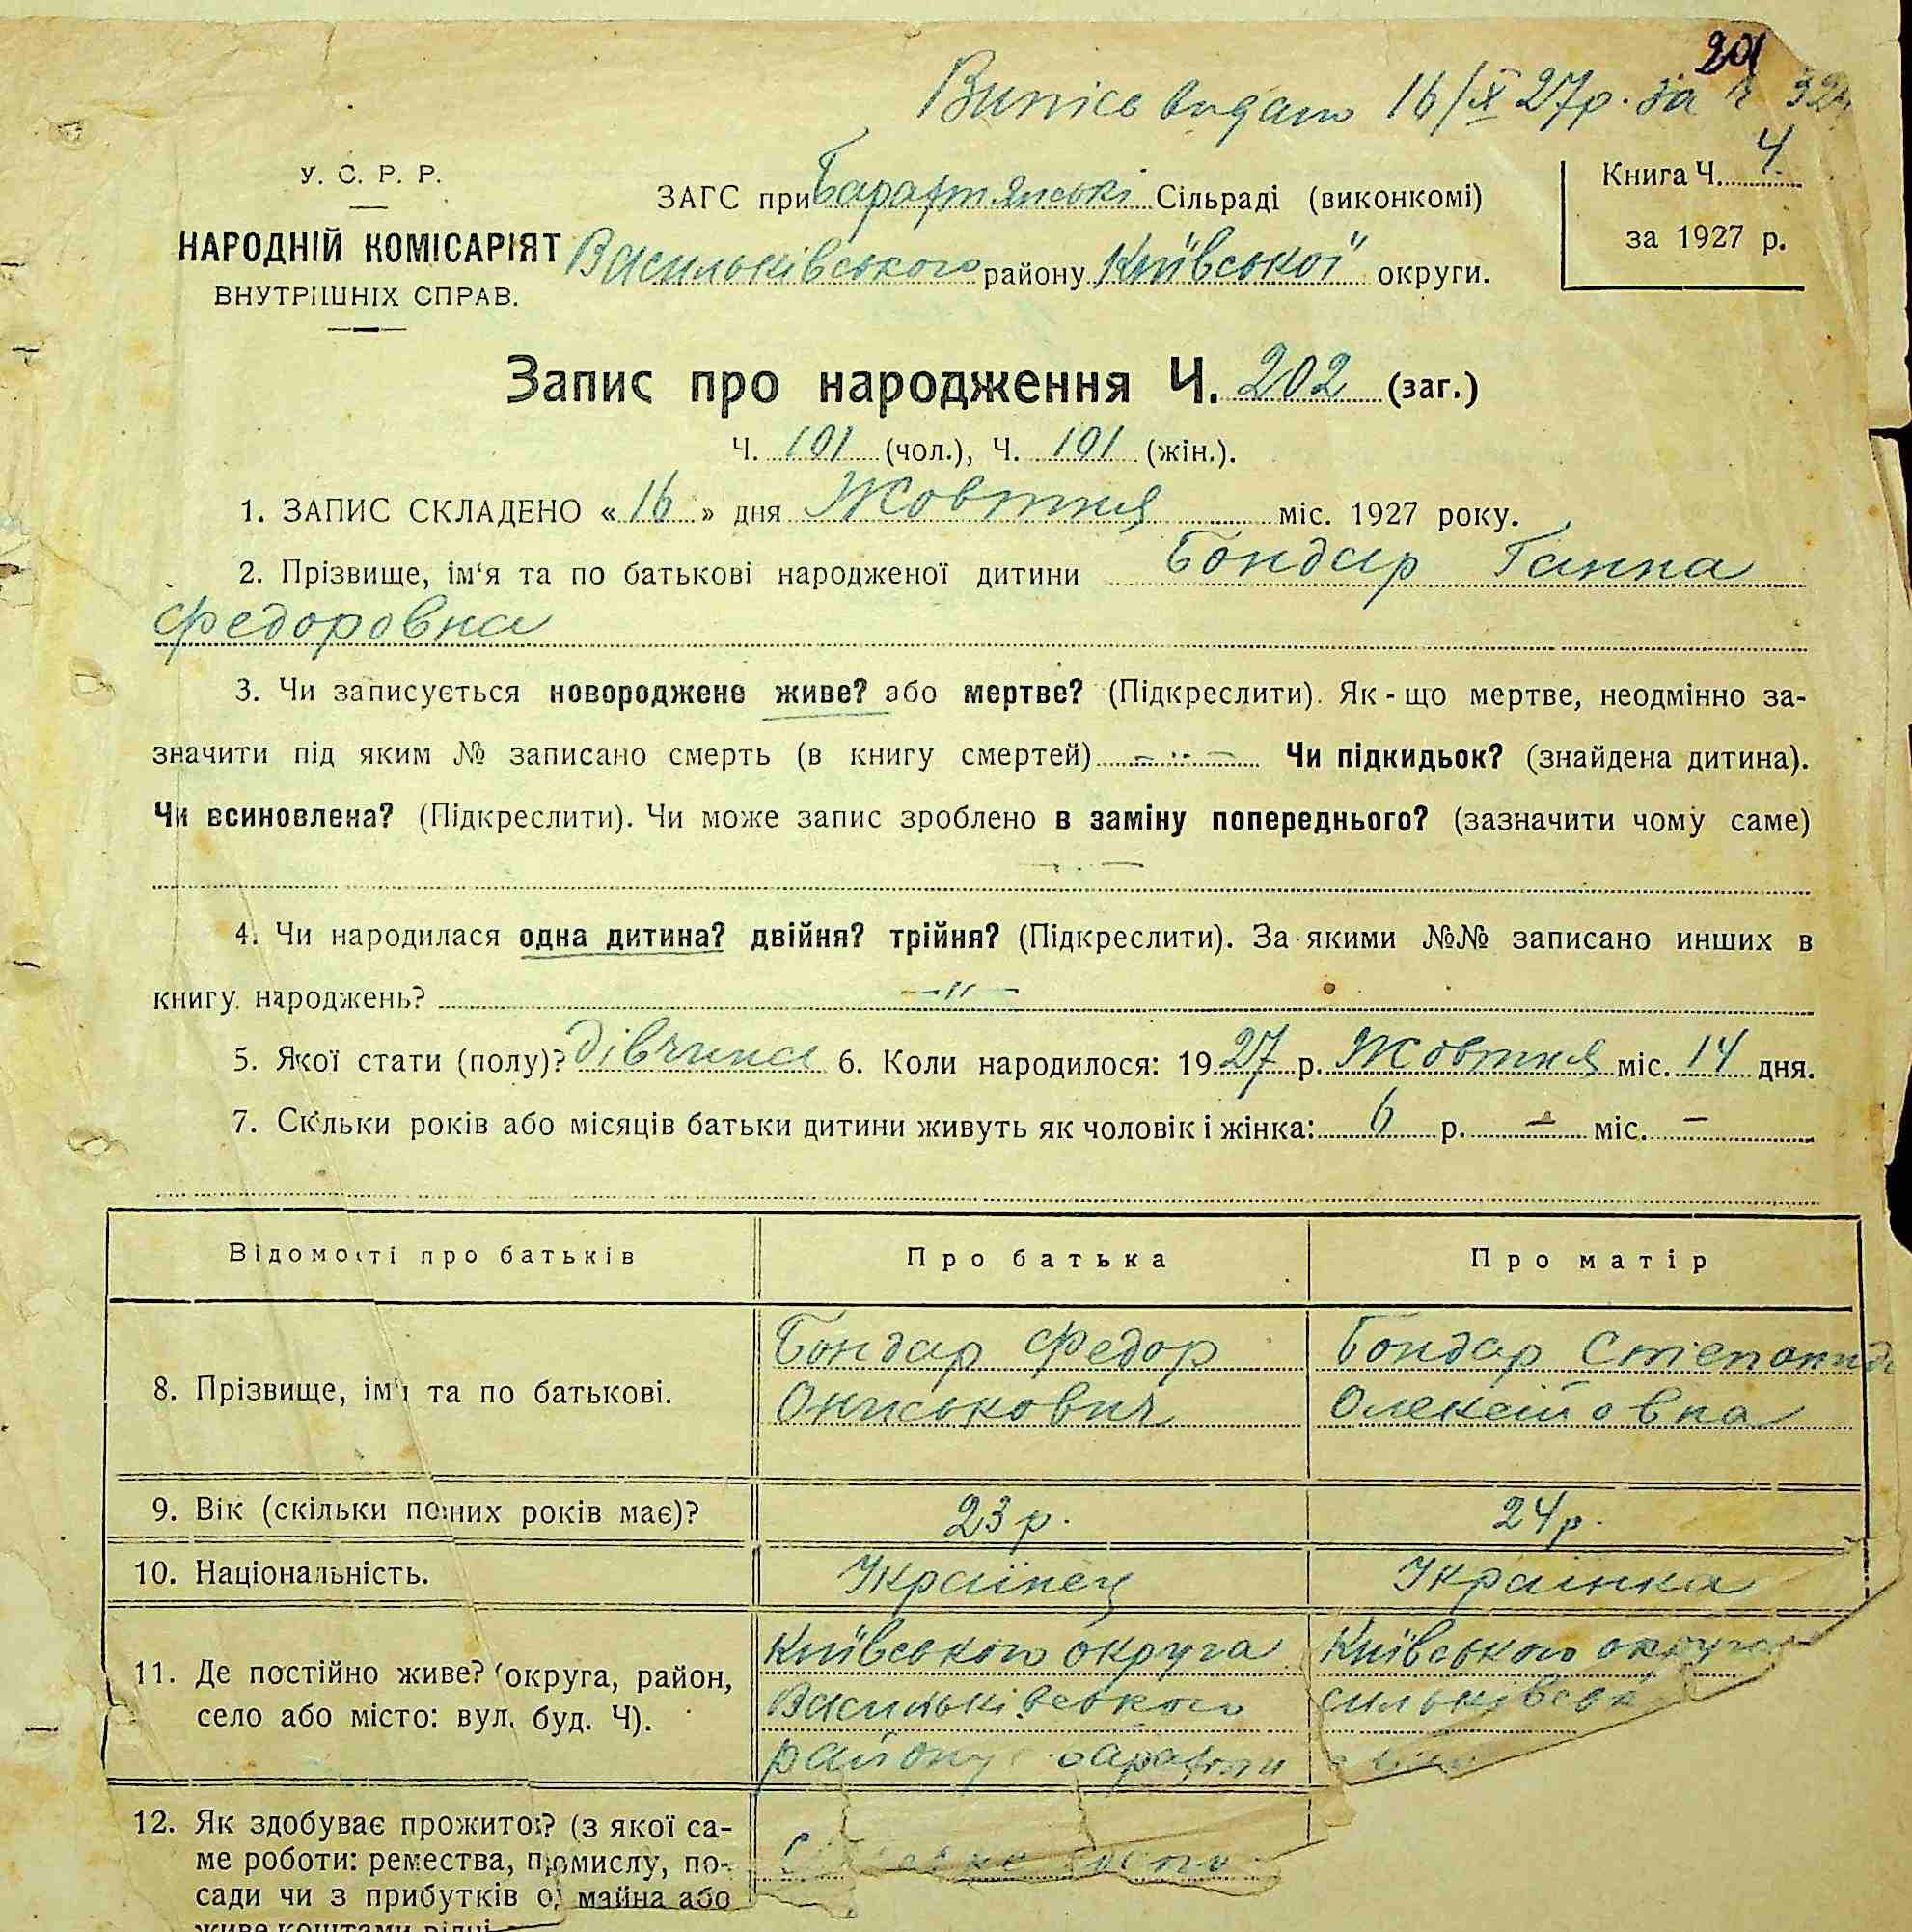 201
Випісь видано 16/X 27р. за № 32
У. С. Р. Р.
НАРОДНІЙ КОМІСАРІЯТ
ВНУТРІШНІХ СПРАВ.
ЗАГС при Барахтянські Сільраді (виконкомі)
Васильківського району Київської округи.
Книга Ч. 4
за 1927 р.
Запис про народження Ч. 202 (заг.)
Ч. 101 (чол.), Ч. 101 (жін.).
1. ЗАПИС СКЛАДЕНО «16» дня Жовтня міс. 1927 року.
2. Прізвище, ім‘я та по батькові народженої дитини Бондар Ганна
Федоровна
3. Чи записується новороджене живе? або мертве? (Підкреслити). Як-що мертве, неодмінно за-
значити під яким № записано смерть (в книгу смертей) Чи підкидьок? (знайдена дитина).
Чи всиновлена? (Підкреслити). Чи може запис зроблено в заміну попереднього? (зазначити чому саме)
4. Чи народилася одна дитина? двійня? трійня? (Підкреслити). За якими №№ записано инших в
книгу народжень? —"—
5. Якої стати (полу)? дівчина 6. Коли народилося: 1927 р. Жовтня міс. 14 дня.
7. Скільки років або місяців батьки дитини живуть як чоловік і жінка: 6 р. — міс. —
Відомості про батьків Про батька Про матір
8. Прізвище, ім'я та по батькові.
Бондар Федор
Ониськович
Бондар Стіепонида
Олексійовна
9. Вік (скільки повних років має)? 23 р. 24 р.
10. Національність. Українец Українка
11. Де постійно живе? (округа, район,
село або місто: вул. буд. Ч).
Київського округа
Васильківського
району Барахти
Київського округа
сильківськ
12. Як здобуває прожиток? (з якої са-
ме роботи: ремества, промислу, по-
сади чи з прибутків од майна або
живе коштами рідні